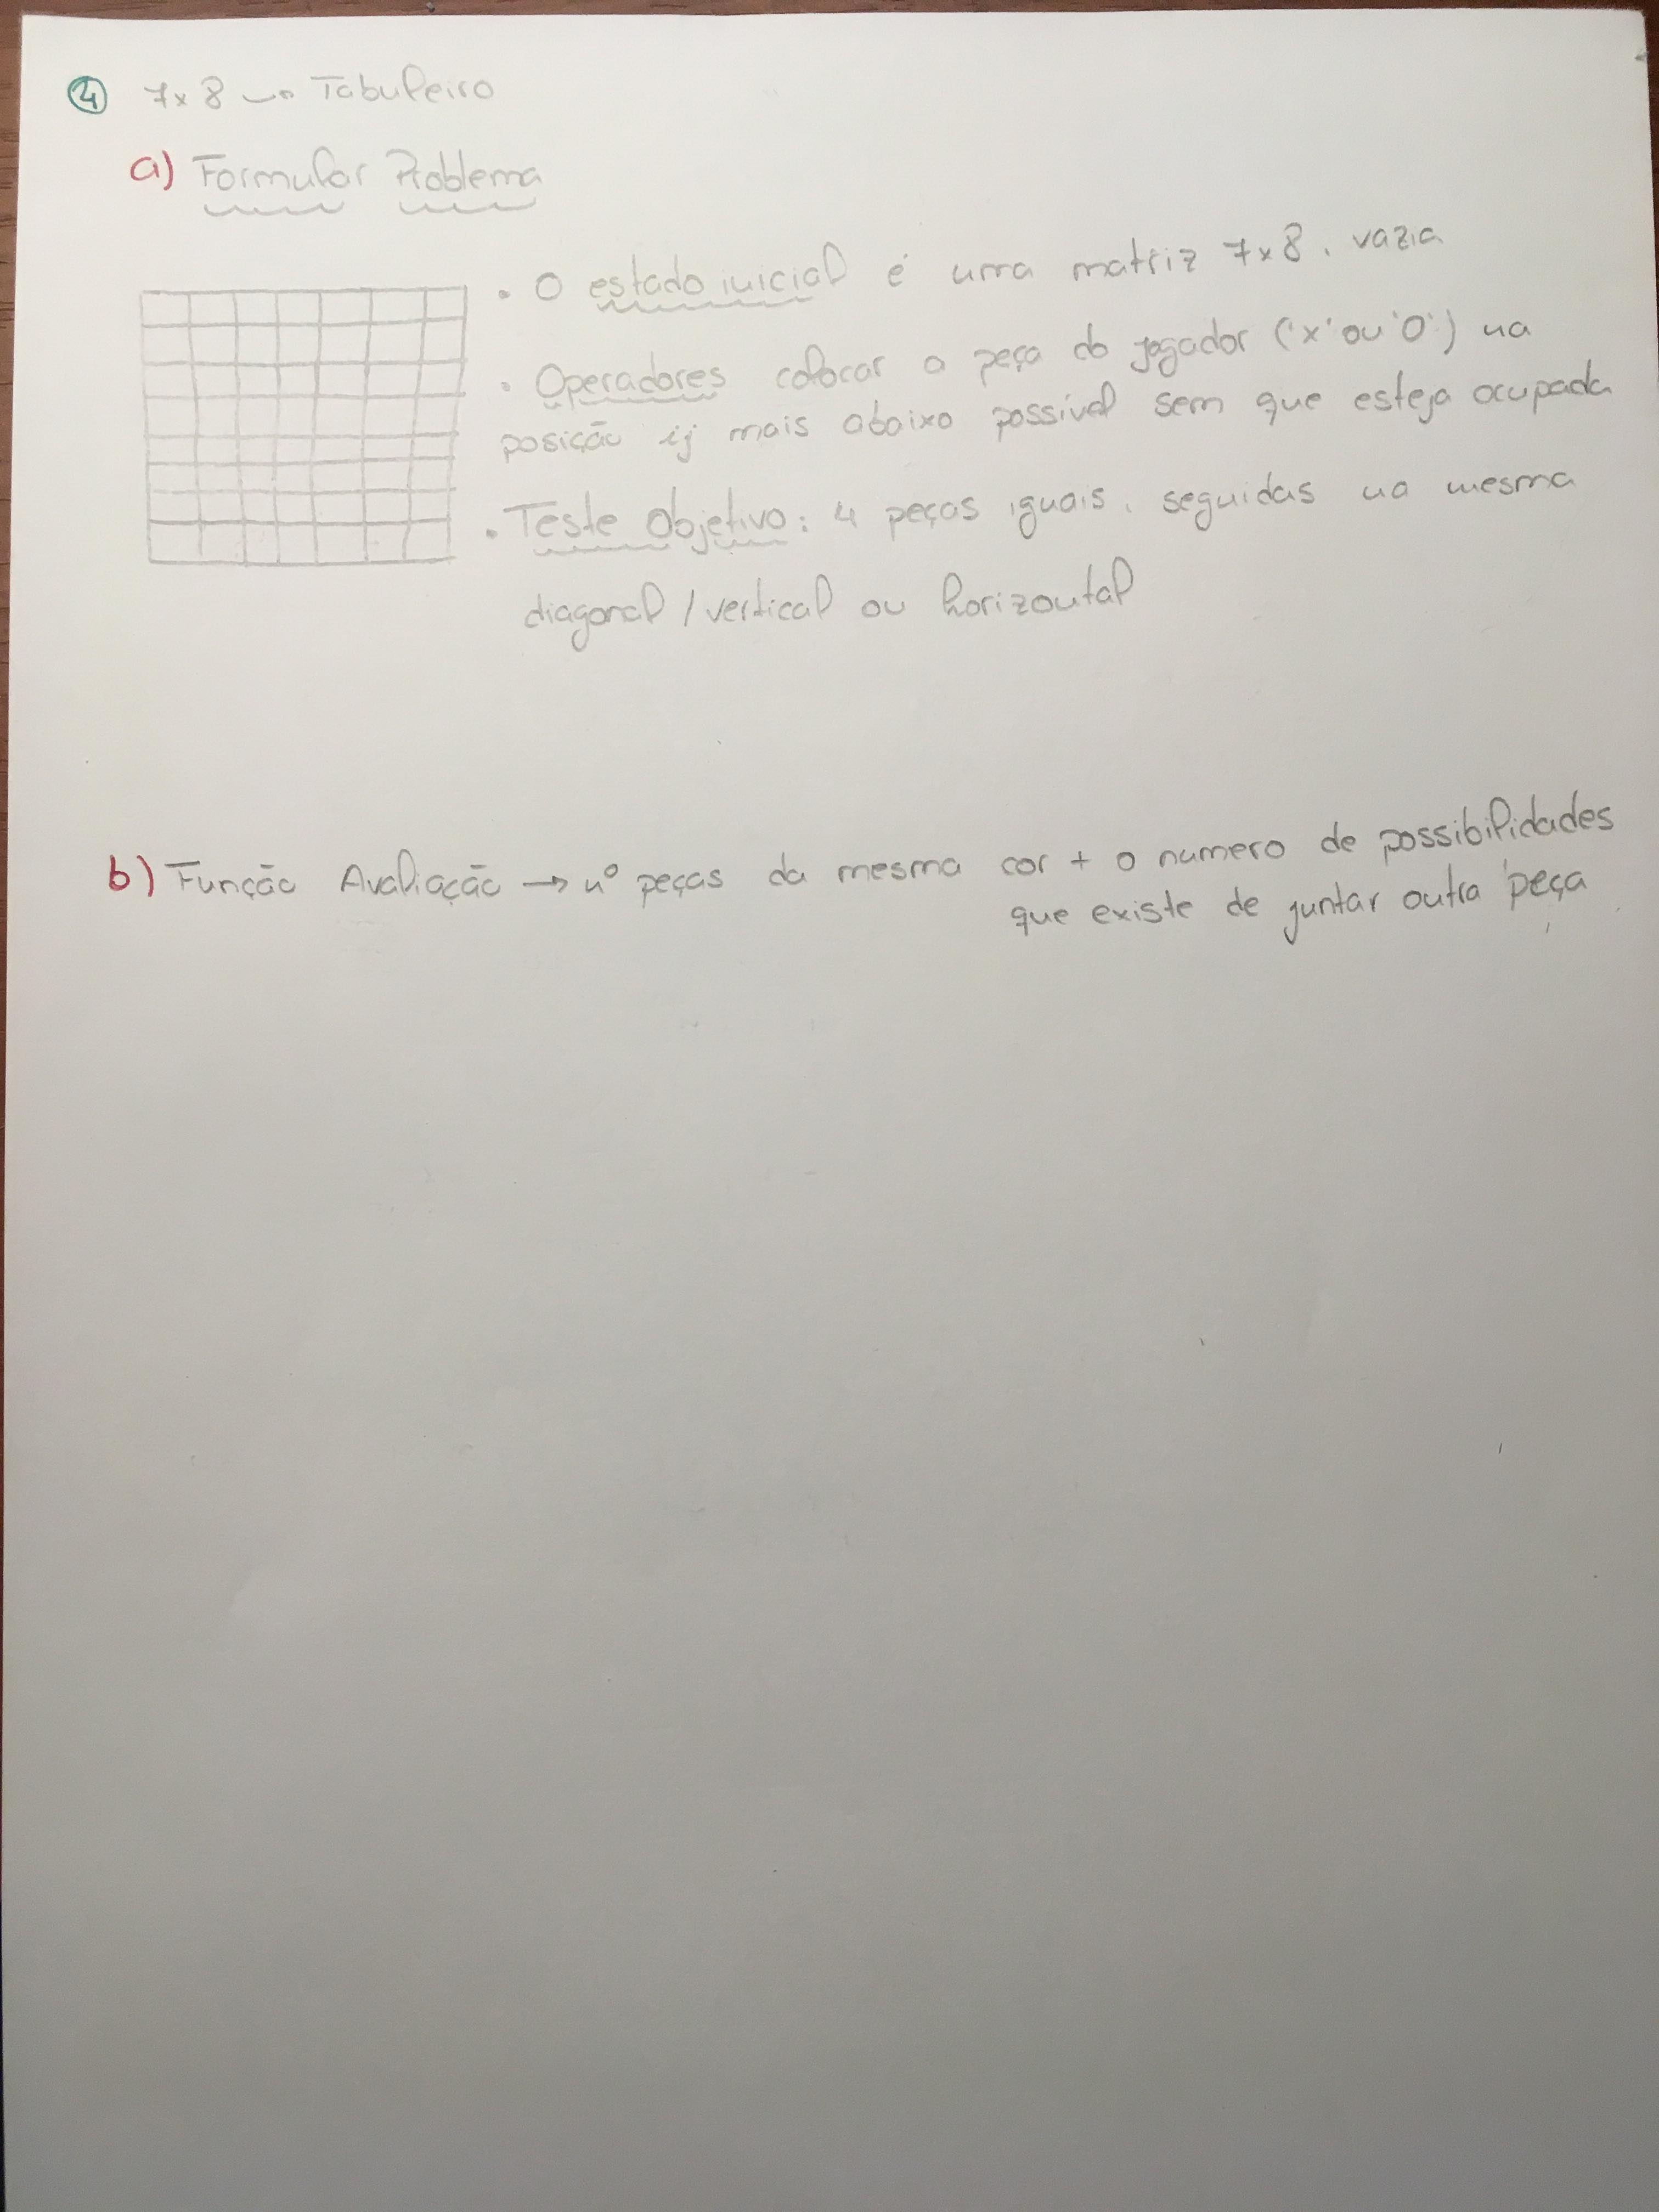 4 7x8 → Tabuleiro
a) Formular Problema
• O estado inicial é uma matriz 7x8, vazia
• Operadores colocar a peça do jogador ('x' ou 'O') na
posição ij mais abaixo possível sem que esteja ocupada
• Teste Objetivo: 4 peças iguais, seguidas na mesma
diagonal / vertical ou horizontal
b) Função Avaliação → nº peças da mesma cor + o numero de possibilidades
que existe de juntar outra peça